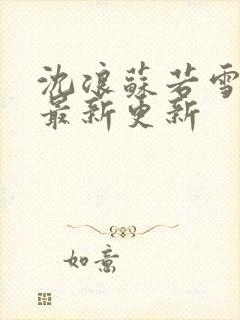 沈浪蘇若雪
最新更新
如意